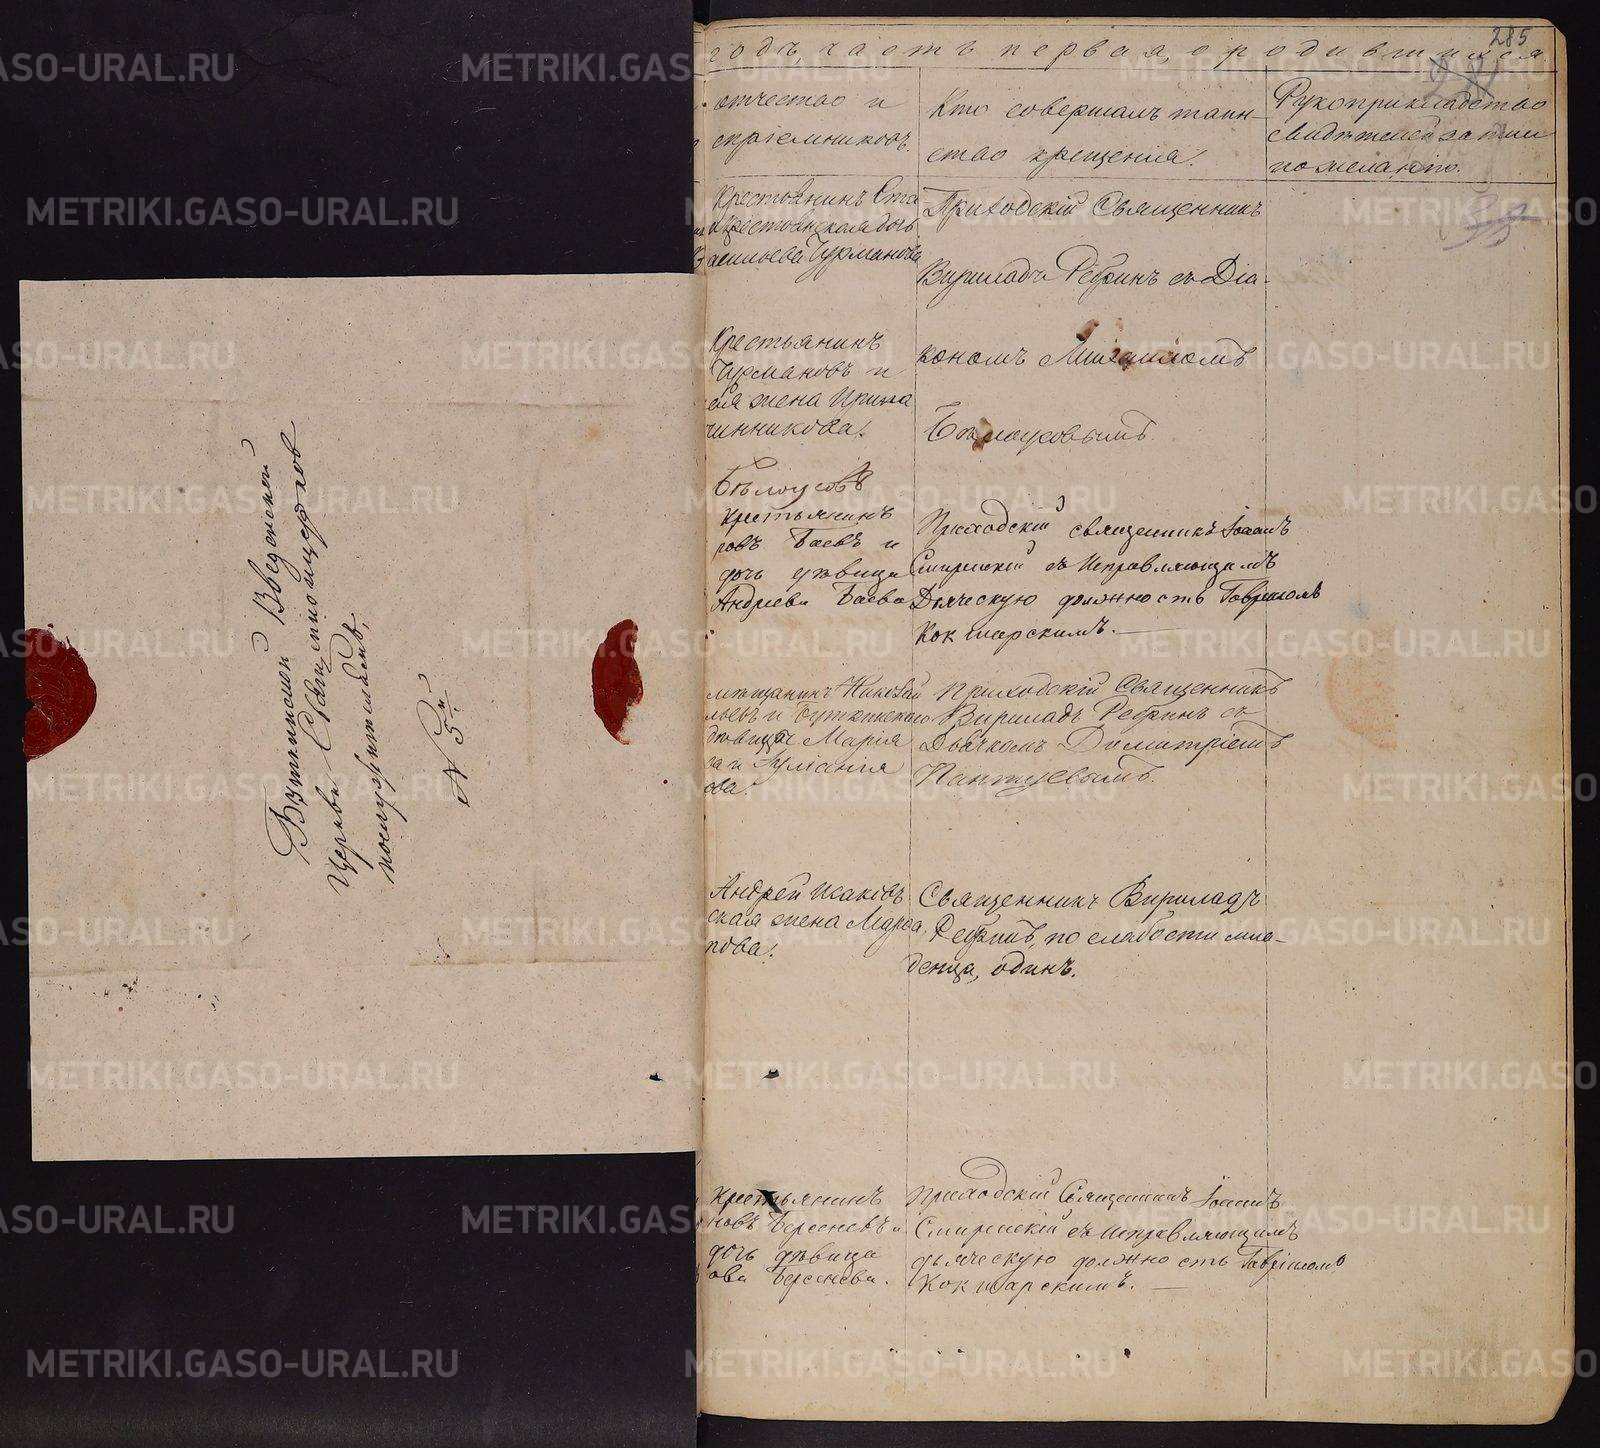 Буткинской Введенской
Церкви Священноцерков
нослужителямъ,
№ 5й
285
годъ, часть первая, о родившихся
отчество и
спріемниковъ.
Кто совершалъ таин-
ство крещенія.
Рукоприкладство
свидѣтелей записи
по желанію.
Крестьянинъ Ста
Крестьянская дочь
асильева Чурманова
Приходскій Священникъ
Вириладъ Ребринъ съ Діа-
кономъ Михаиломъ
Бѣлоусовымъ.
Крестьянинъ
Чурмановъ и
жена Ирина
чинникова.
Бѣлоусовъ
крестьянинъ
ровъ Баевъ и
дочь дѣвица
Андреева Баева
Приходскій священникъ Іоаннъ
Смирнскій съ Исправляющимъ
Дьяческую должность Гавріиломъ
Кокшарскимъ.
мѣщанинъ Николай
льевъ и Буткинская
дѣвица Марія
и Іуліанія
ова.
Приходскій Священникъ
Вириладъ Ребринъ съ
Дьячкомъ Димитріемъ
Пантуевымъ.
Андрей Исаковъ
ская жена Марфа
пова.
Священникъ Вириладъ
Ребринъ, по слабости мла-
денца, одинъ.
Крестьянинъ
новъ Берсеневъ и
дочь дѣвица
ова Берсенева.
Приходскій Священникъ Іоаннъ
Смирнскій съ исправляющимъ
дьяческую должность Гавріиломъ
Кокшарскимъ.
METRIKI.GASO-URAL.RU